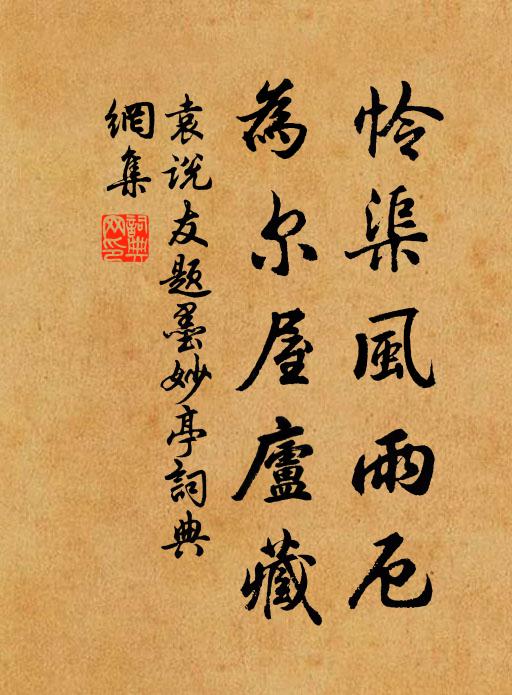 怜渠風雨厄
為尔屋廬藏
袁説友題墨妙亭詞典
網集
詞典網印